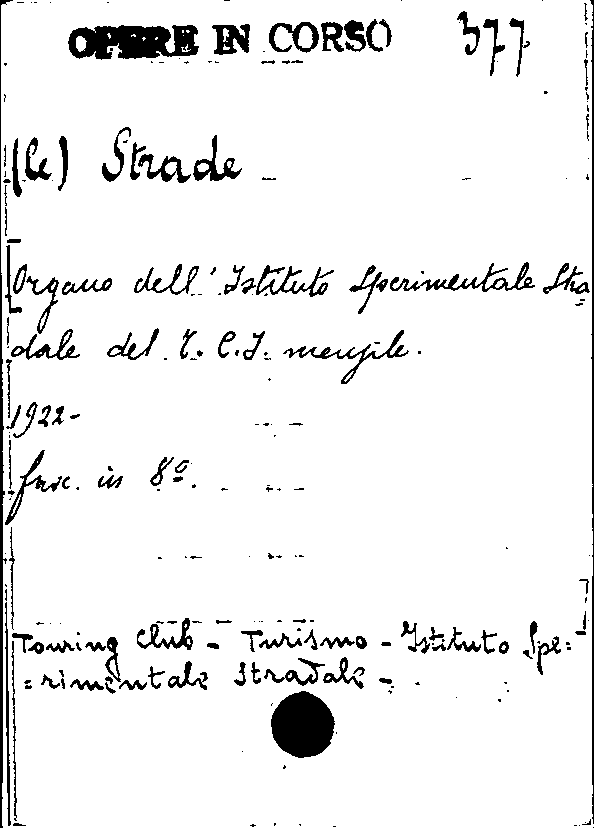 OPERE IN CORSO 377
(le) Strade
Organo dell' Istituto Sperimentale Stra=
dale del T. C. I. mensile.
1922-
fasc. in 8º.
Touring Club - Turismo - Istituto Spe=
=rimentale Stradale -